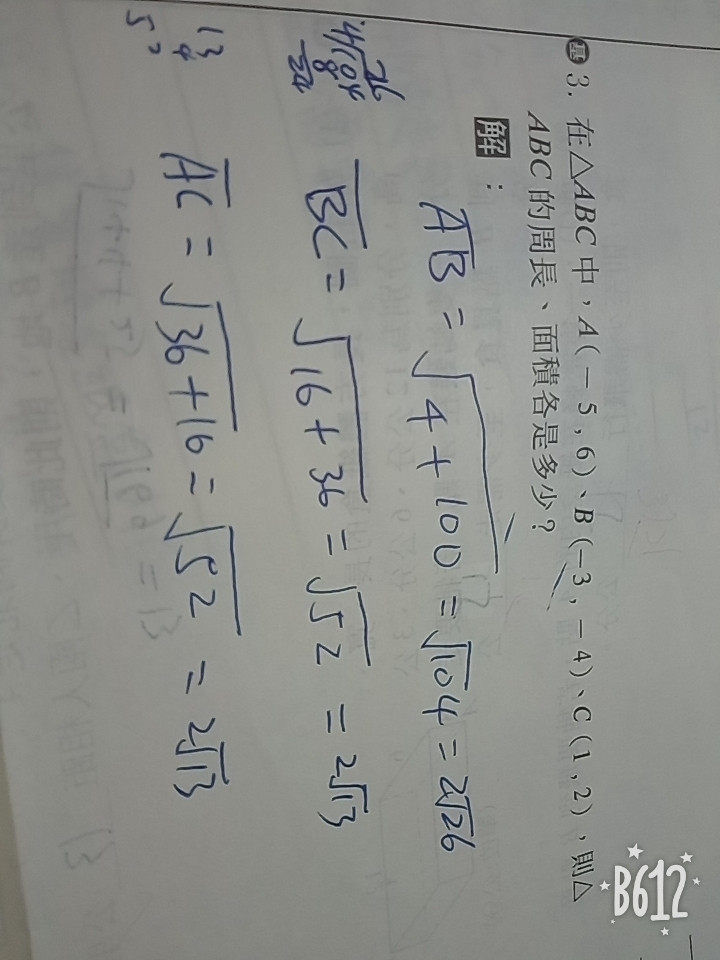 基 3. 在△ABC 中，A(－5 , 6)、B(－3 , －4)、C(1 , 2)，則△
ABC 的周長、面積各是多少？
解：
AB = √4+100 = √104 = 2√26
BC = √16+36 = √52 = 2√13
AC = √36+16 = √52 = 2√13
26
4/104
8
24
13
4
52
B612